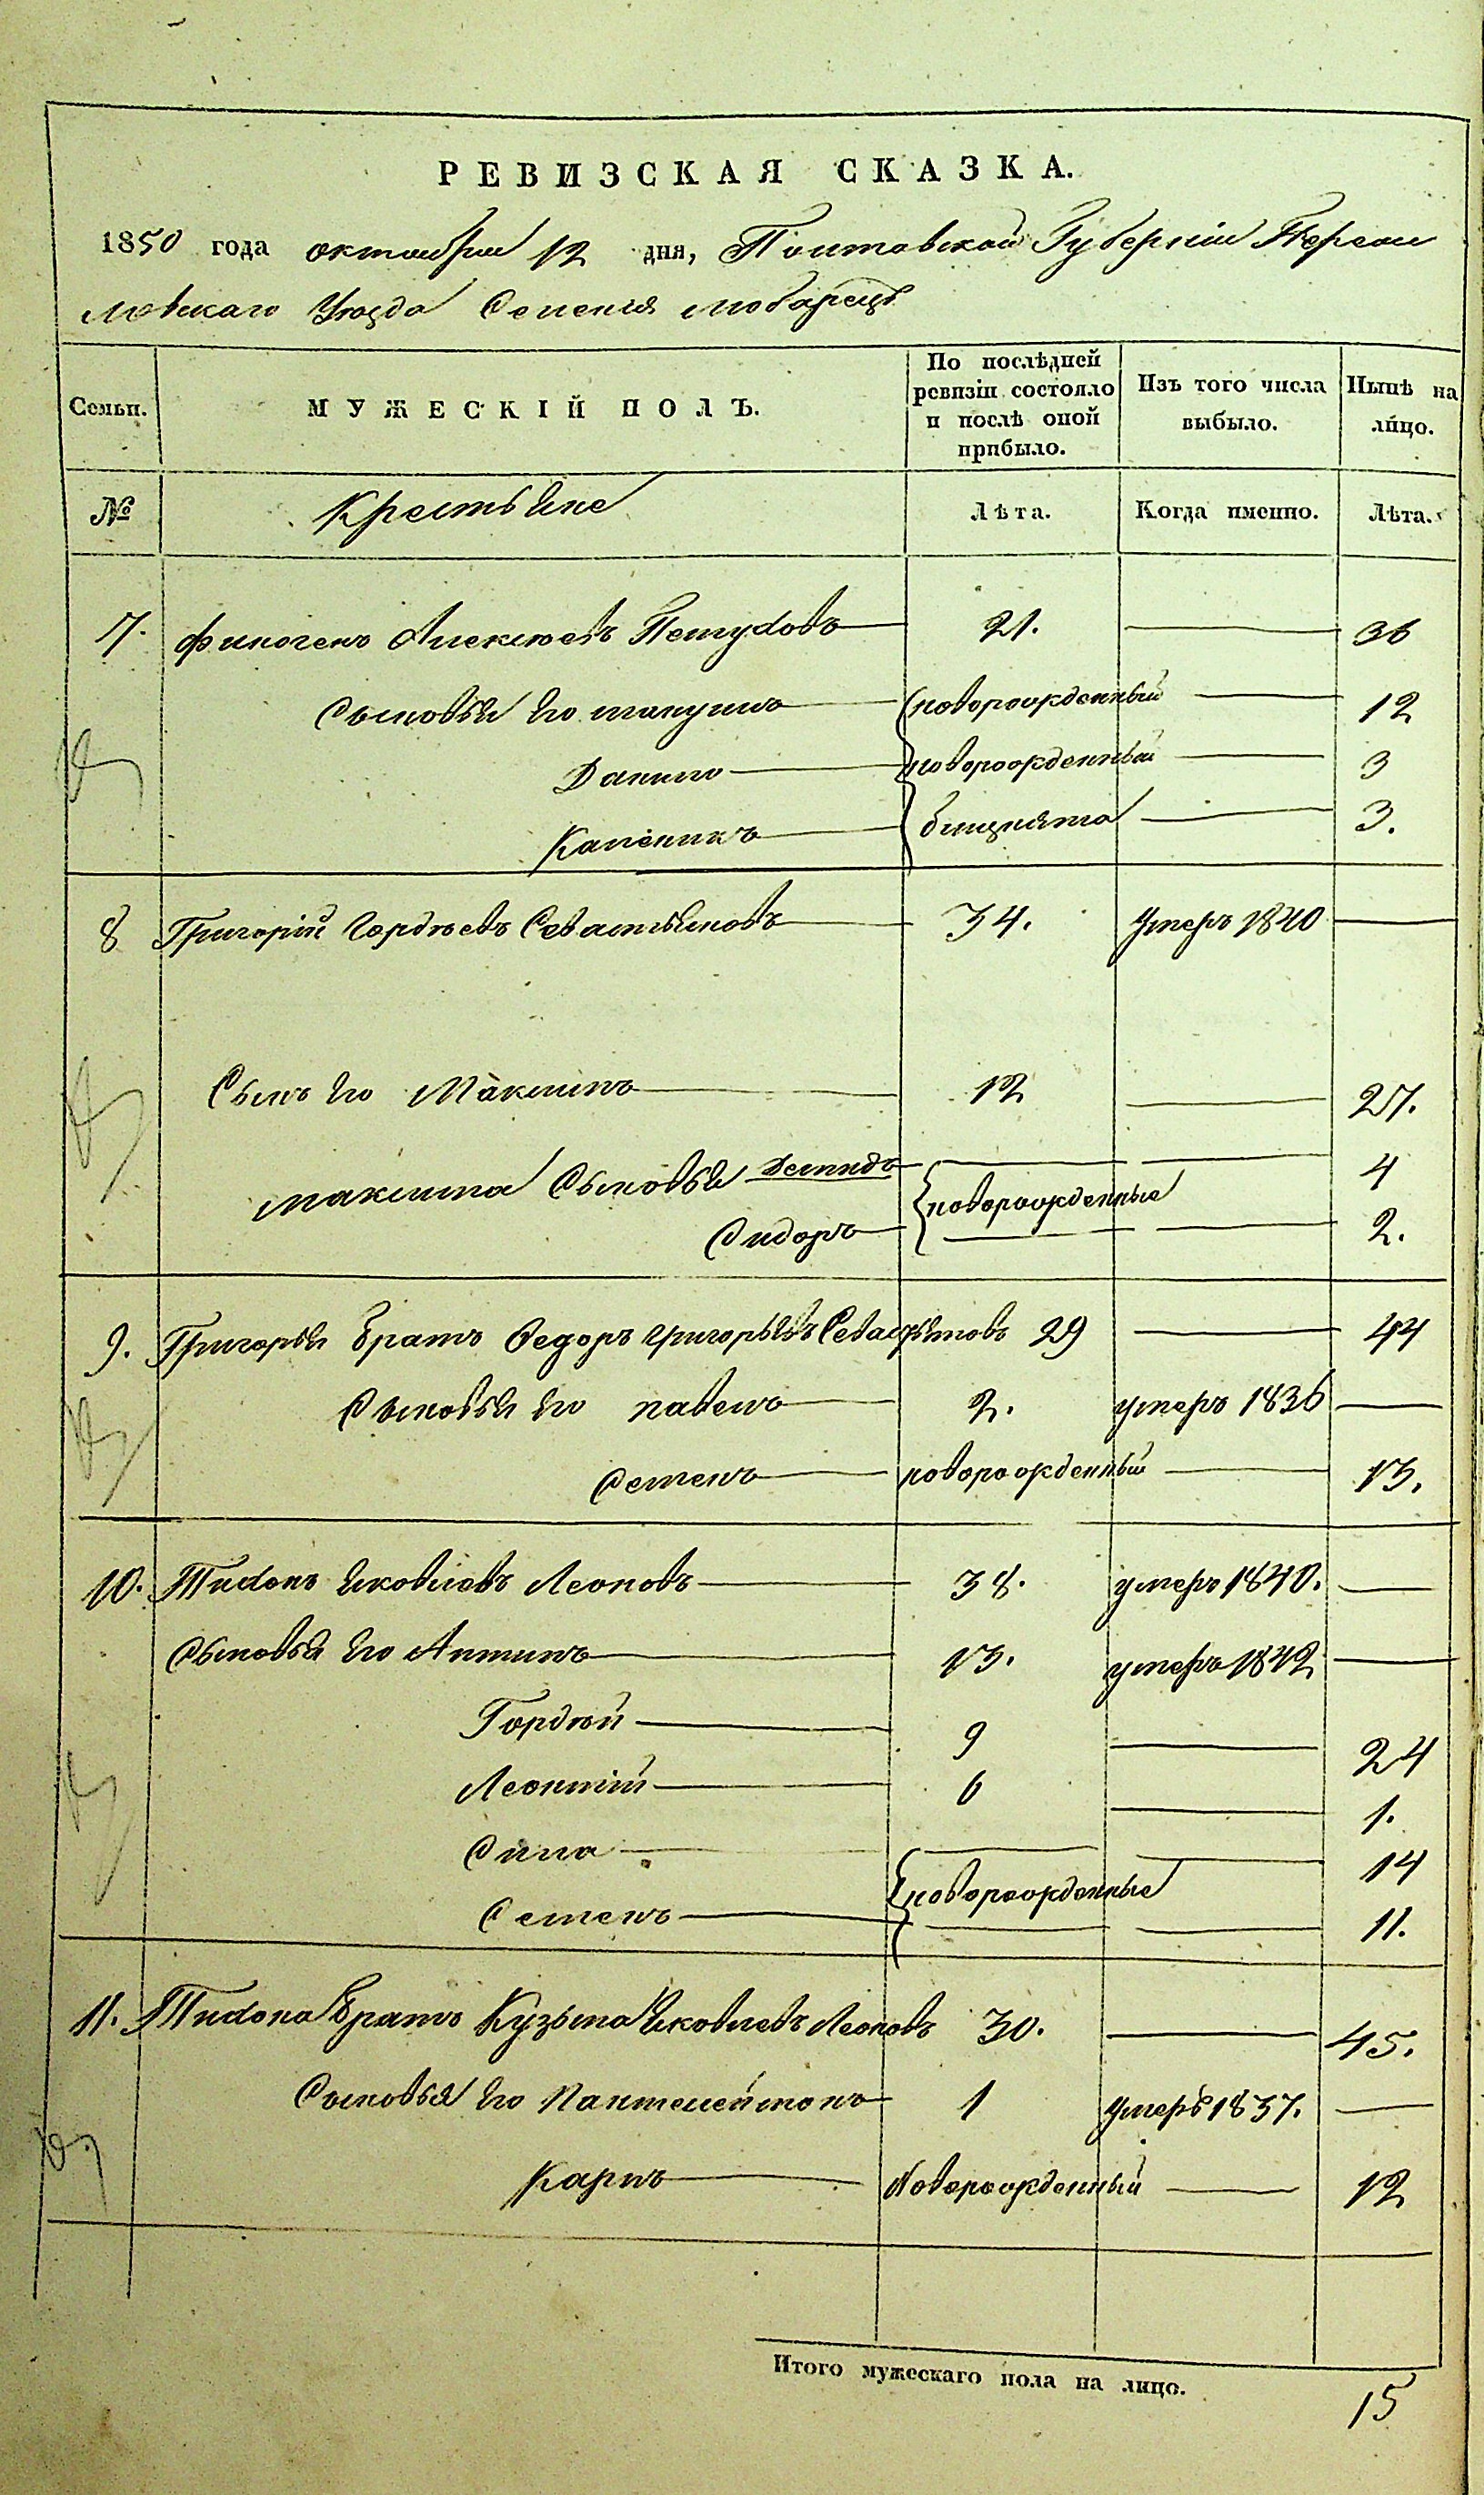 РЕВИЗСКАЯ СКАЗКА.
1850 года октября 12 дня, Полтавской Губерніи Переяс
лавскаго Уѣзда Селенія
Семьи. МУЖЕСКІЙ ПОЛЪ. По послѣдней ревизіи состояло и послѣ оной прибыло. Изъ того числа выбыло. Нынѣ на лицо.
№ Крестьяне Лѣта. Когда именно. Лѣта.
7. Финогенъ Алексѣевъ Петуховъ 21. 36
Сыновья Его новорожденный 12
Данило новорожденный 3
Каленикъ близнята 3.
8 Григорій Гордѣевъ Севастьяновъ 34. умеръ 1840
Сынъ Его Максимъ 12 27.
Максима Сыновья Демидъ 4
новорожденные
Сидоръ 2.
9. Григорья братъ Федоръ Григорьевъ Севастьяновъ 29 44
Сыновья Его Павелъ 2. умеръ 1836
Семенъ новорожденный 13.
10. Тихонъ Яковлевъ Леоновъ 38. умеръ 1840.
Сыновья Его Антипъ 13. умеръ 1842
Гордѣй 9 24
Леонтій 6 1.
Сила 14
новорожденные
Семенъ 11.
11. Тихона братъ Кузьма Яковлевъ Леоновъ 30. 45.
Сыновья Его Пантелеймонъ 1 умеръ 1837.
Карпъ Новорожденный 12
Итого мужескаго пола на лицо. 15